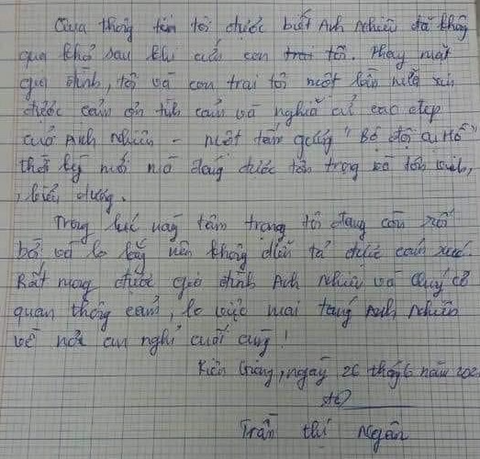 Qua thông tin tôi được biết Anh Nhiên đã không
qua khỏi sau khi cứu con trai tôi. Thay mặt
gia đình, tôi và con trai tôi một lần nữa xin
được cảm ơn tình cảm và nghĩa cử cao đẹp
của Anh Nhiên – một tấm gương "Bộ đội cụ Hồ"
thời kỳ mới mà đáng được tôn trọng và tôn vinh,
, biểu dương.
Trong lúc này tâm trạng tôi đang còn rối
bời và lo lắng nên không diễn tả được cảm xúc.
Rất mong được gia đình Anh Nhiên và Quý cơ
quan thông cảm, lo việc mai táng Anh Nhiên
về nơi an nghỉ cuối cùng!
Kiên Giang, ngày 26 tháng 6 năm 202
Trần thị Ngân